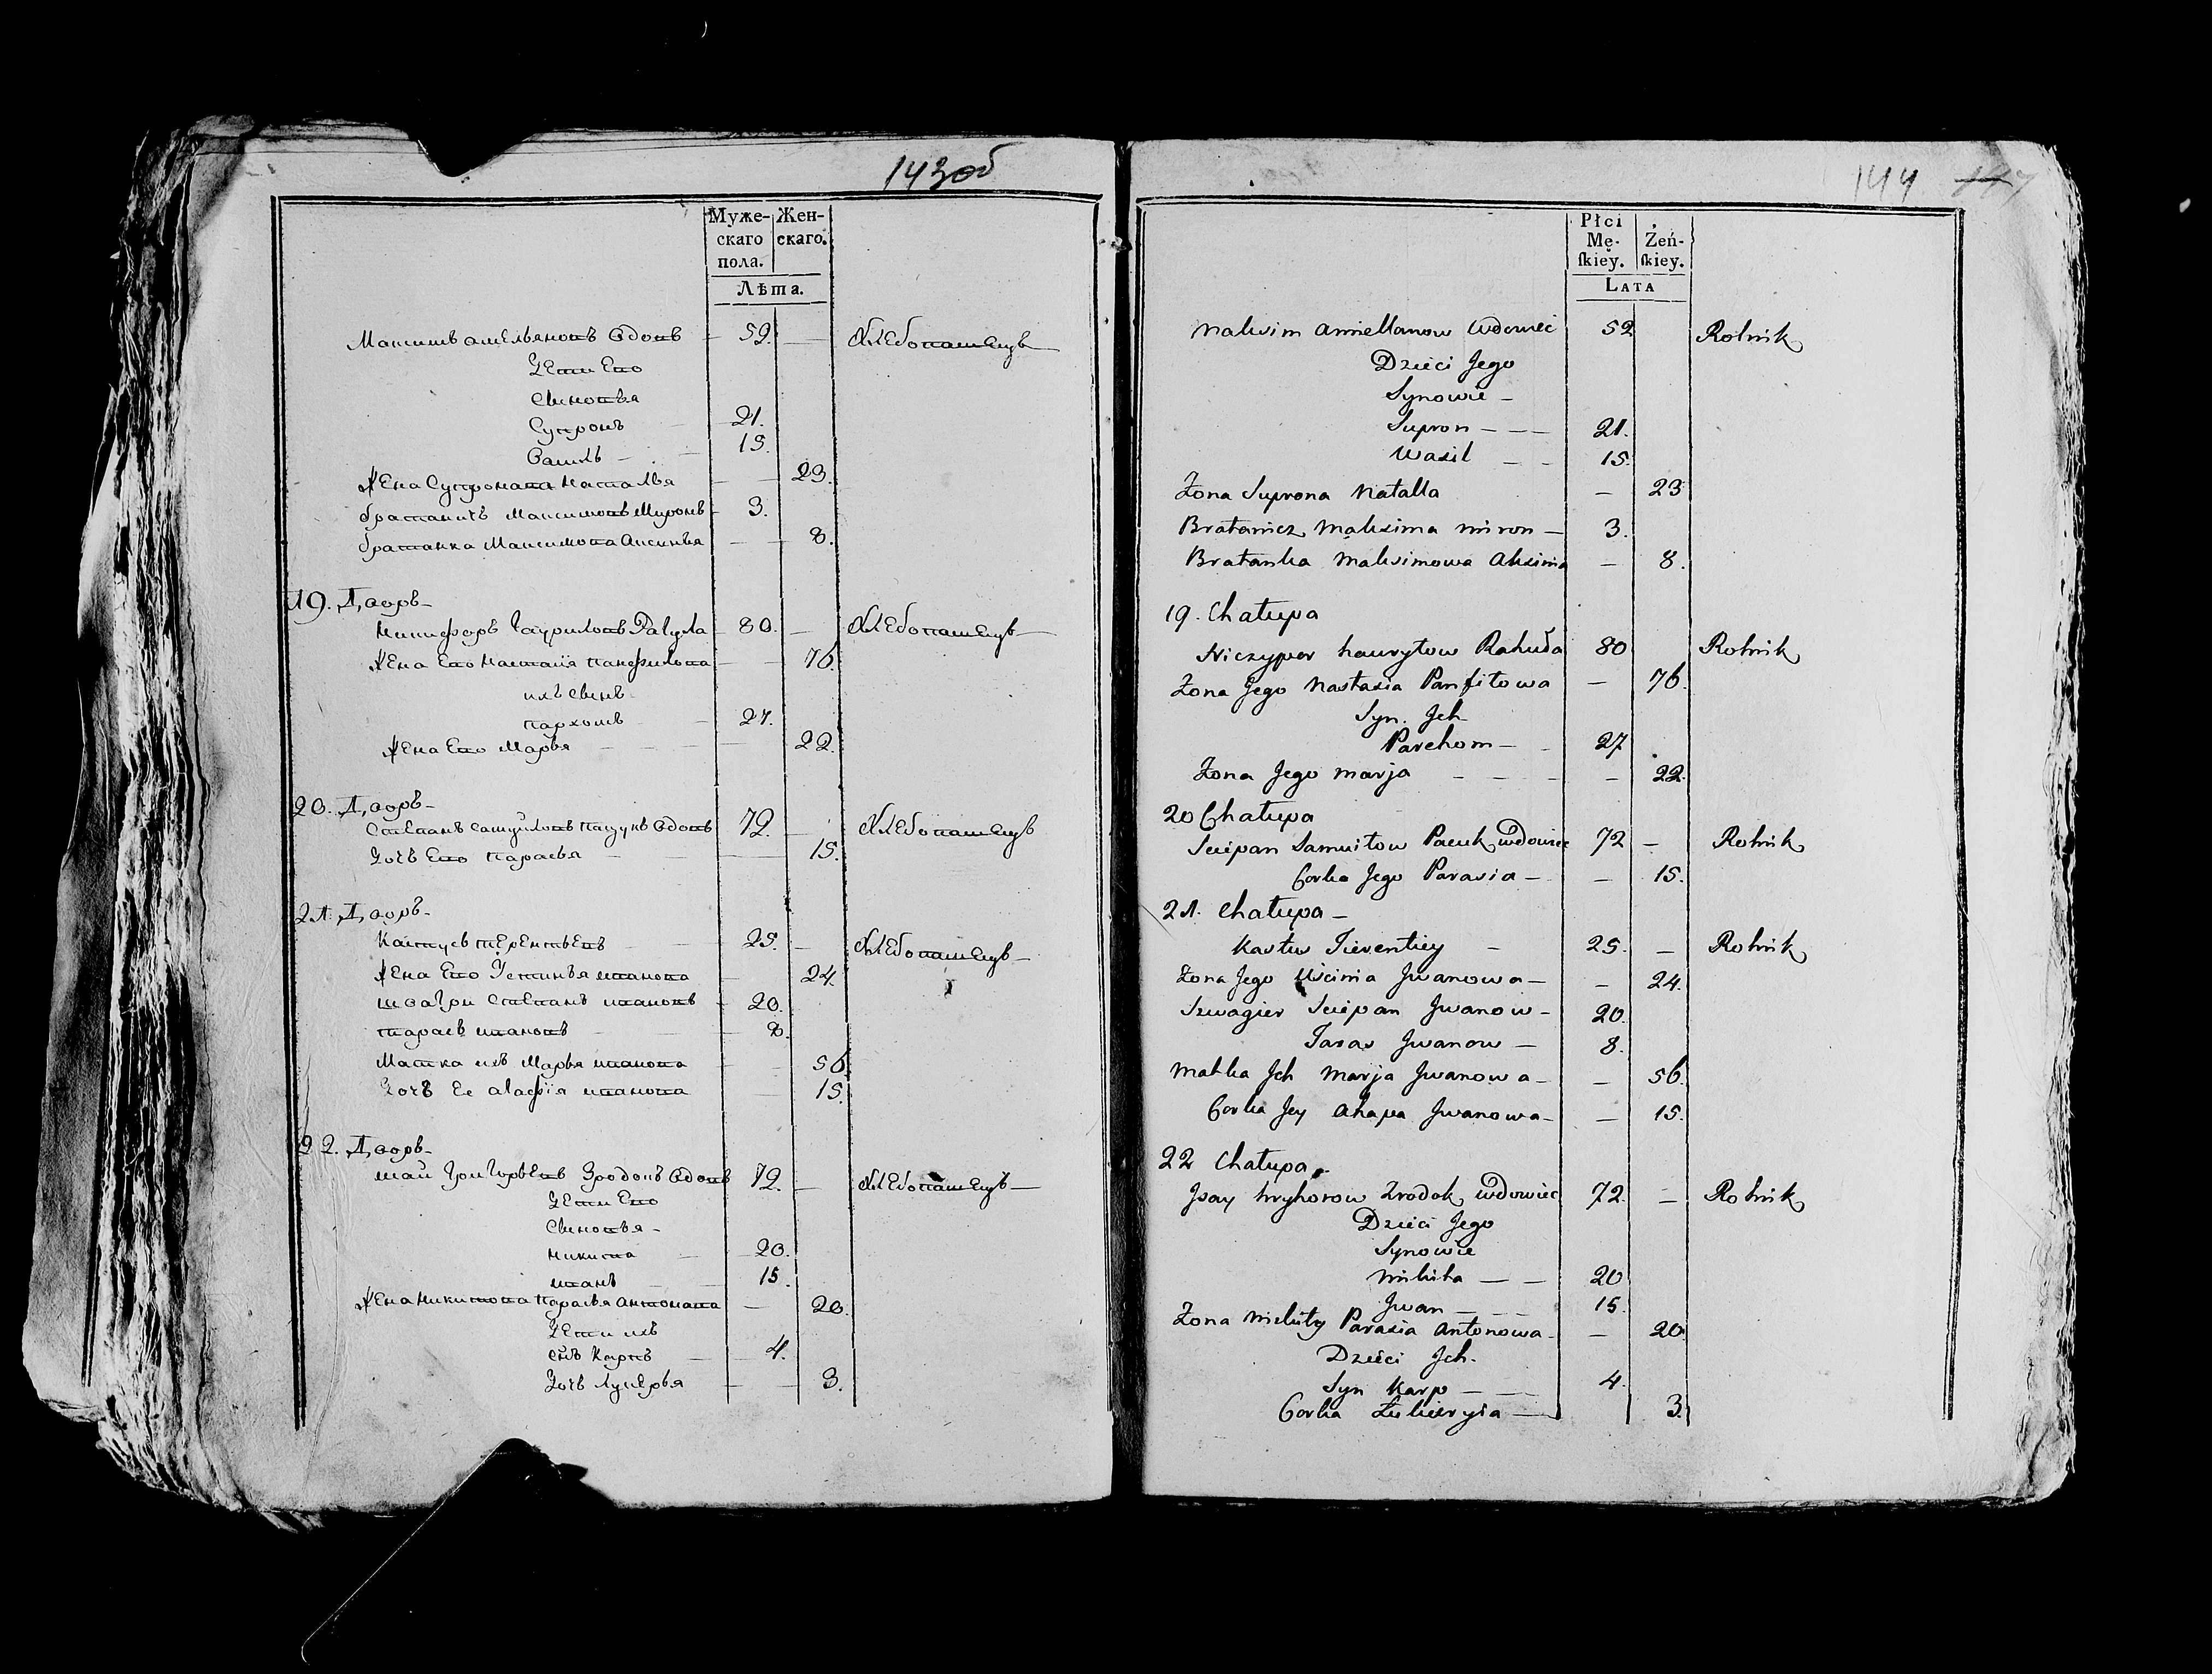 143об
Муже- Жен-
скаго скаго.
пола.
Лѣта.
Максимъ амельяновъ вдовъ 52. Хлебопашецъ
Дети Его
Сыновья
Супронъ 21.
Василь 15.
Жена Супронава Наталья 23.
братаничъ Максимовъ Миронъ 3.
братанка Максимова Аксинья 8.
19. Дворъ
Никифоръ Гаурыловъ Рагула 80. Хлебопашецъ
Жена Его Настасія Панфилова 76.
ихъ Сынъ
Пархомъ 27.
Жена Его Марья 22.
20. Дворъ
Степанъ Самуйловъ Пацукъ вдовъ 72. Хлебопашецъ
Дочь Его Парасья 15.
21. Дворъ
Кастусь терентьевъ 25. Хлебопашецъ
Жена Его Устинья иванова 24.
швагри Степанъ ивановъ 20.
тарасъ ивановъ 8.
Матка ихъ Марья иванова 56.
Дочь Ее агафія иванова 15.
22. Дворъ
исай Григорьевъ Зродокъ вдовъ 72. Хлебопашецъ
Дети Его
Сыновья
Никита 20.
иванъ 15.
Жена Никитова Парасья антонава 20.
Дети ихъ
Сынъ Карпъ 4.
Дочь Лукерья 3.
144
Płci
Mę- Żeń-
skiey. skiey.
LATA
Maksim Amiellanow Wdowiec 52 Rolnik
Dzieci Jego
Synowie
Supron 21.
Wasil 15.
Żona Suprona Natalla 23
Bratanicz Maksima Miron 3.
Bratanka Maksimowa Aksinia 8.
19. Chałupa
Niczypor hauryłow Rahuła 80 Rolnik
Żona Jego Nastasia Panfiłowa 76.
Syn Jch
Parchom 27
Żona Jego Marja 22.
20 Chałupa
Sciepan Samuiłow Pacuk wdowiec 72 Rolnik
Corka Jego Parasia 15.
21. Chałupa
Kastus Tierentiey 25. Rolnik
Żona Jego Uścinia Jwanowa 24.
Szwagier Sciepan Jwanow 20.
Taras Jwanow 8.
Matka Jch Marja Jwanowa 56.
Corka Jey Ahapa Jwanowa 15.
22 Chałupa
Jsay hryhorow Zrodok wdowiec 72. Rolnik
Dzieci Jego
Synowie
Mikita 20
Jwan 15.
Żona Mikity Parasia Antonowa 20
Dzieci Jch.
Syn Karp 4.
Corka Łukieryia 3.